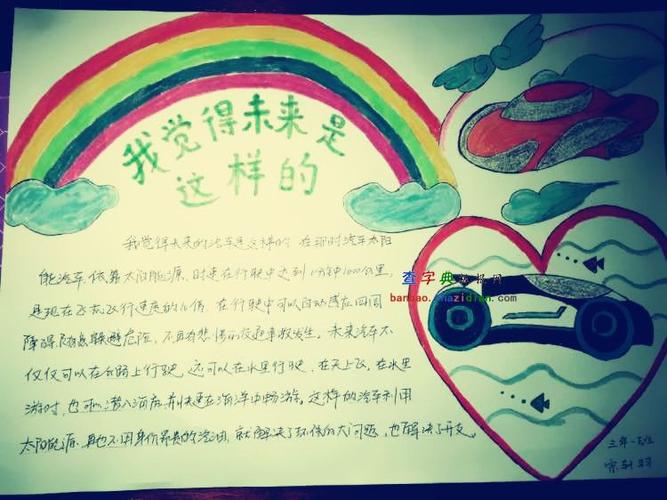 我觉得未来是
这样的
我觉得未来的汽车是这样的 在那时汽车太阳
能汽车依靠太阳能源,时速在行驶中达到1分钟1000公里,
是现在飞机飞行速度的 倍 在行驶中可以自动感应四周
障碍 躲避危险,不再有悲惨的交通事故发生。未来汽车不
仅仅可以在公路上行驶 还可以在水里行驶、在天上飞,在水里
游时,也可以潜入海底 快速在海洋中畅游。这样的汽车利用
太阳能源 再也不用 昂贵的汽油,就解决了环保的大问题,也解决了开支。
查字典 报网
banbao.chazidian.com
三年一